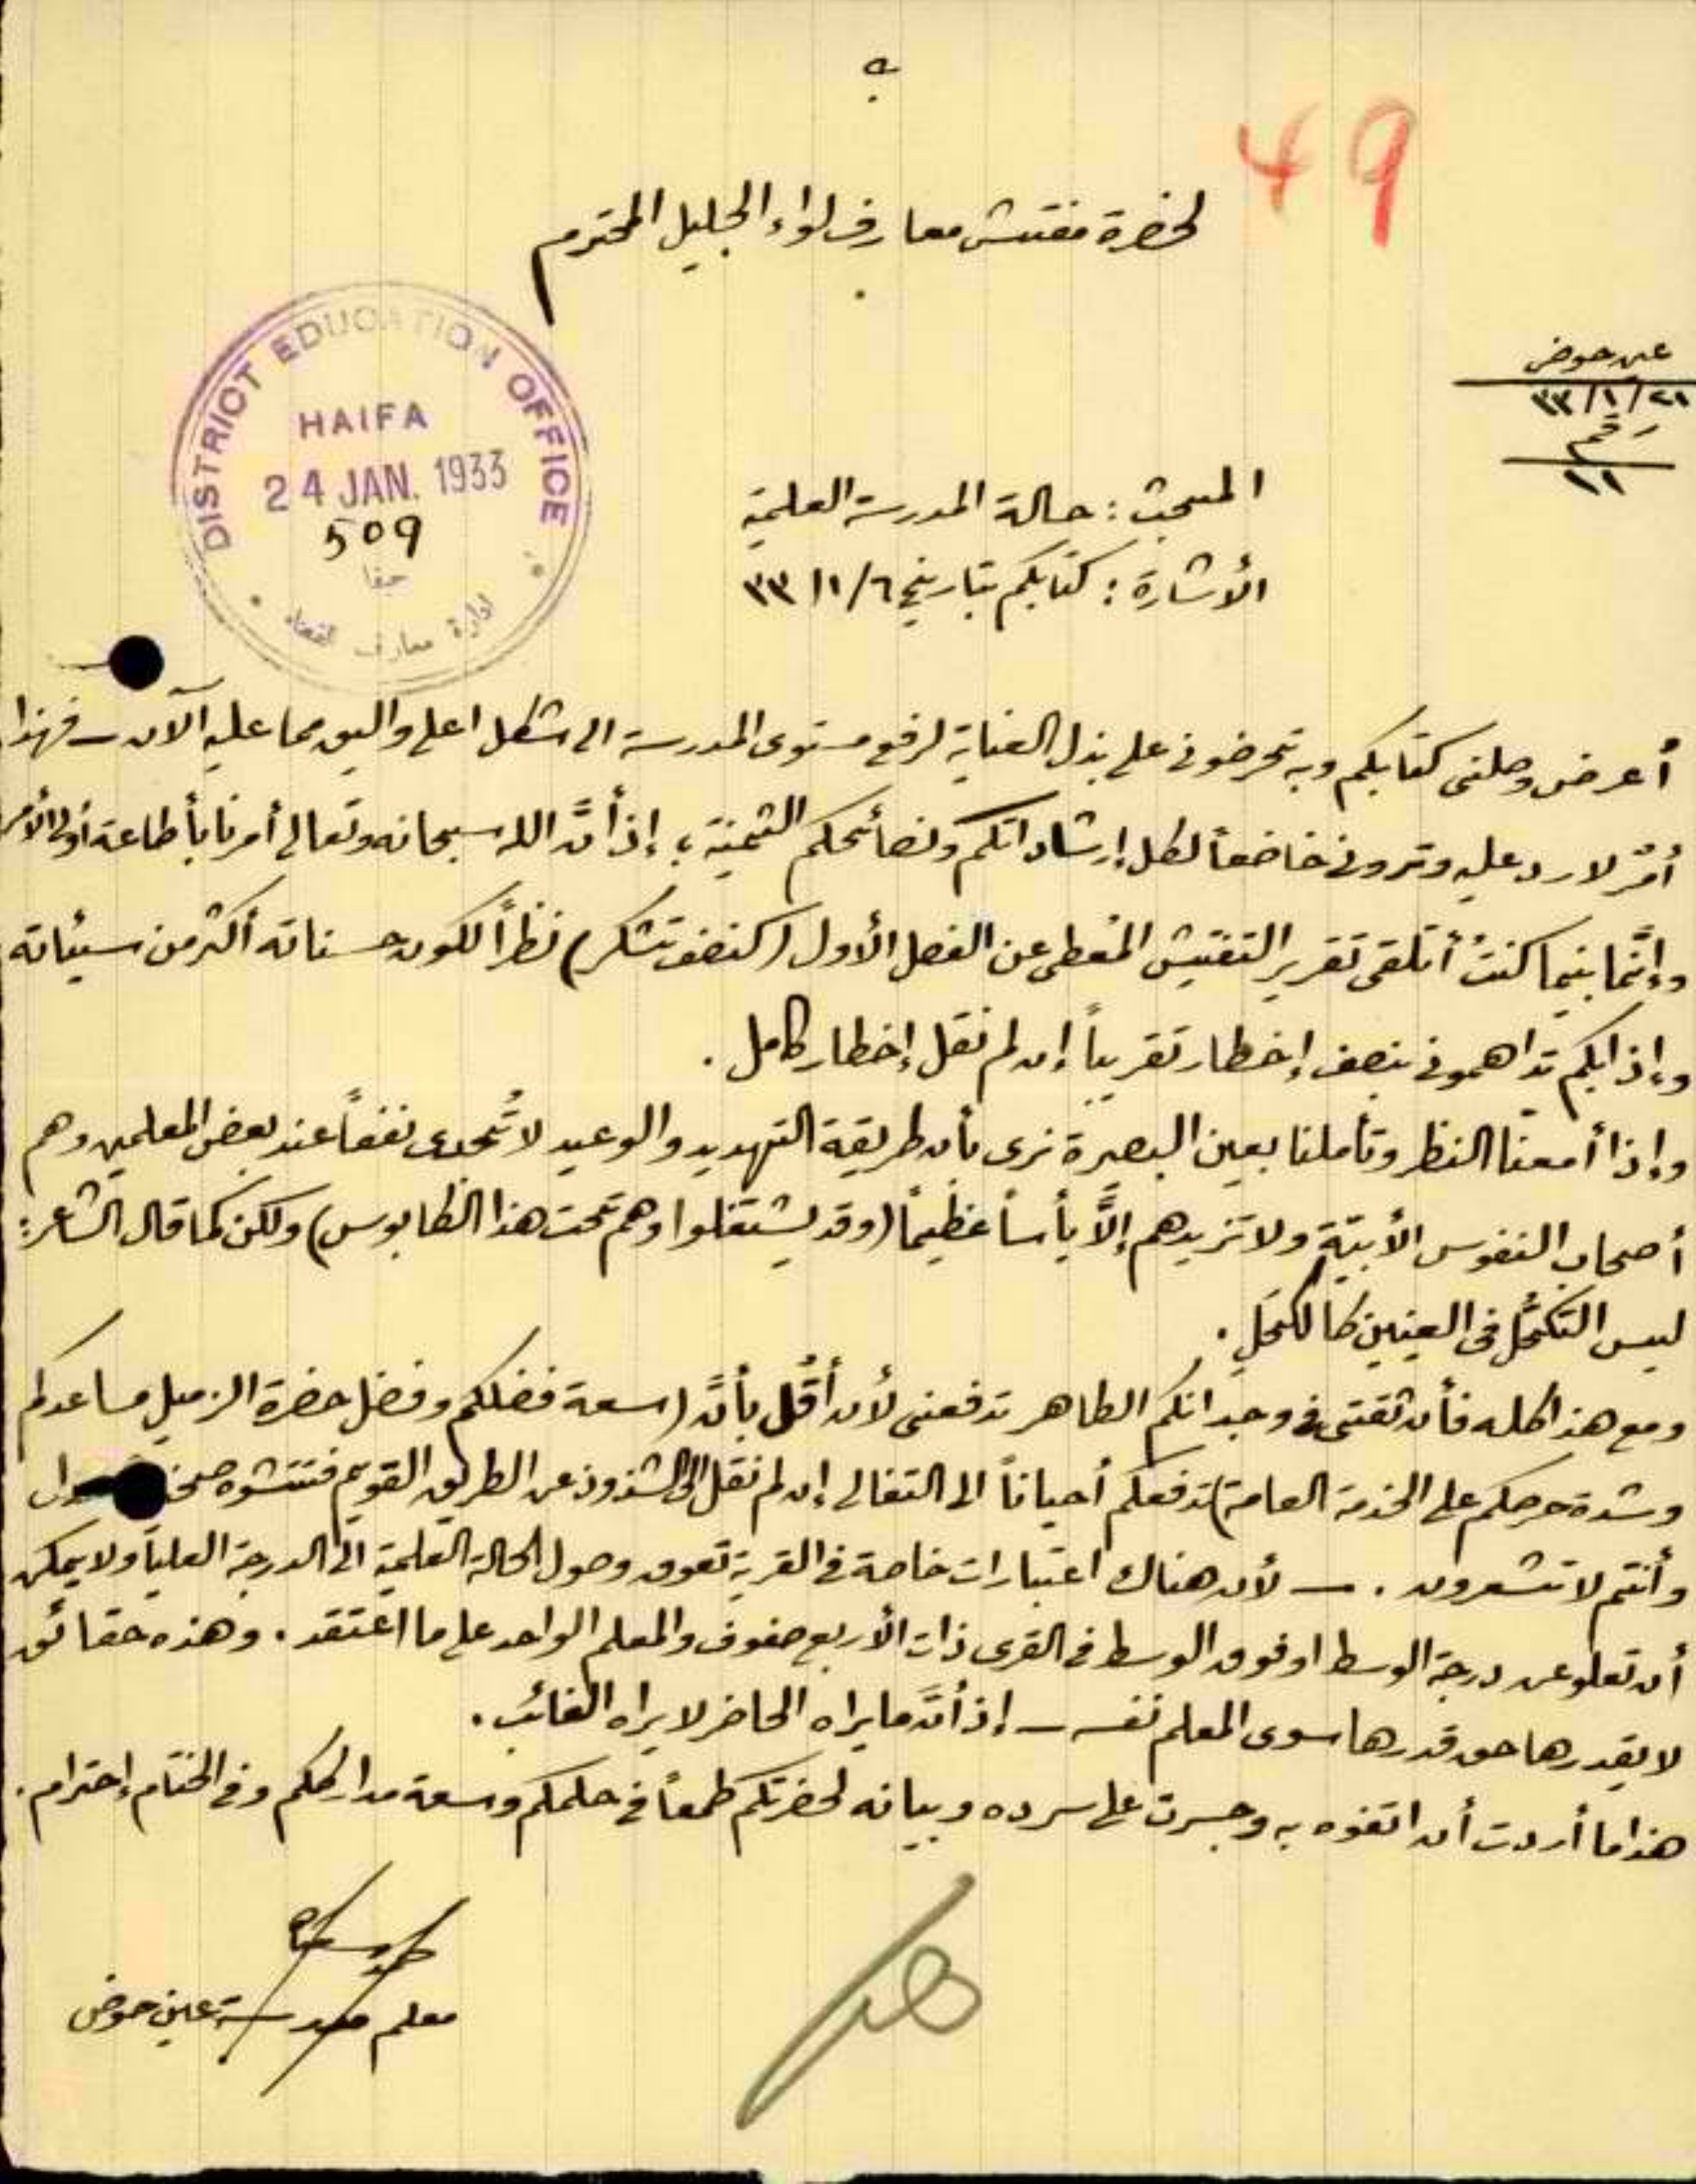 49
لحضرة مفتش معارف لواء الجليل المحترم
عين حوض
٢١/١/٣٣
رقم
١١
DISTRICT EDUCATION OFFICE
HAIFA
24 JAN. 1933
509
حيفا
ادارة معارف
المبحث : حالة المدرسة العلمية
الأشارة : كتابكم بتاريخ ٦/١/٣٣
أعرض وصلني كتابكم وبه تحرضوني على بذل العناية لرفع مستوى المدرسة الى شكل اعلى واليق مما عليه الآن ــ فهذا
أمرٌ لا رد عليه وتروني خاضعاً لكل إرشاداتكم ونصائحكم الثمينة ، إذ أنَّ الله سبحانه وتعالى أمرنا بأطاعة أولى الأمر
وإنَّما بينما كنتُ أتلقى تقرير التفتيش المُعطى عن الفصل الأول (كنصف تشكر) نظراً لكون حسناته أكثر من سيئاته
وإذ ابكم تداهموني بنصف إخطار تقريباً إن لم نقل إخطار كامل .
وإذا أمعنّا النظر وتأملنا بعين البصيرة نرى بأن طريقة التهديد والوعيد لا تُجدى نفعاً عند بعض المعلمين وهم
أصحاب النفوس الأبيّة ولا تزيدهم إلاَّ يأساً عظيماً (وقد يشتغلوا وهم تحت هذا الكابوس) ولكن كما قال الشاعر:
ليس التكحُّل في العينين كالكحَلِ .
ومع هذا كله فأن ثقتى في وجدانكم الطاهر تدفعنى لأن أقُل بأنَّ (سعة فضلكم وفضل حضرة الزميل مساعدكم
وشدة حرصكم على الخدمة العامة) تدفعكم أحياناً الى التغالى إن لم نقل الى الشذوذ عن الطريق القويم فتنشوه
وأنتم لا تشعرون . ــ لأن هناك اعتبارات خاصة في القرية تعوق وصول الحالة العلمية الى الدرجة العليا ولا يمكن
أن تعلو عن درجة الوسط او فوق الوسط في القرى ذات الأربع صفوف والمعلم الواحد على ما اعتقد . وهذه حقائق
لا يقدرها حق قدرها سوى المعلم نفسه ــ إذ أنَّ ما يراه الحاضر لا يراه الغائب .
هذا ما أردت أن اتفوه به وجسرت على سرده وبيانه لحضرتكم طمعاً في حلمكم وسعة مدارككم وفي الختام إحترام .
معلم مدرسة عين حوض